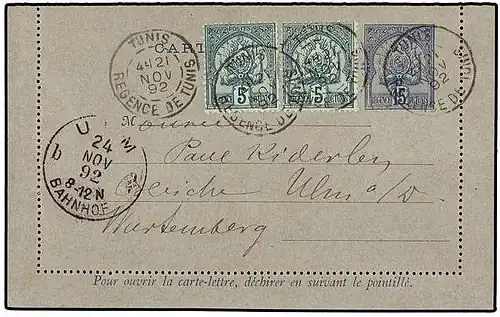 CART
TUNIS
4E 21
NOV
92
REGENCE DE TUNIS
5
5
15
Monsieur
Paul Kiderlen
Ulm a/D.
Wurtemberg
ULM
24
NOV
92
8-12N
BAHNHOF
b
Pour ouvrir la carte-lettre, déchirer en suivant le pointillé.